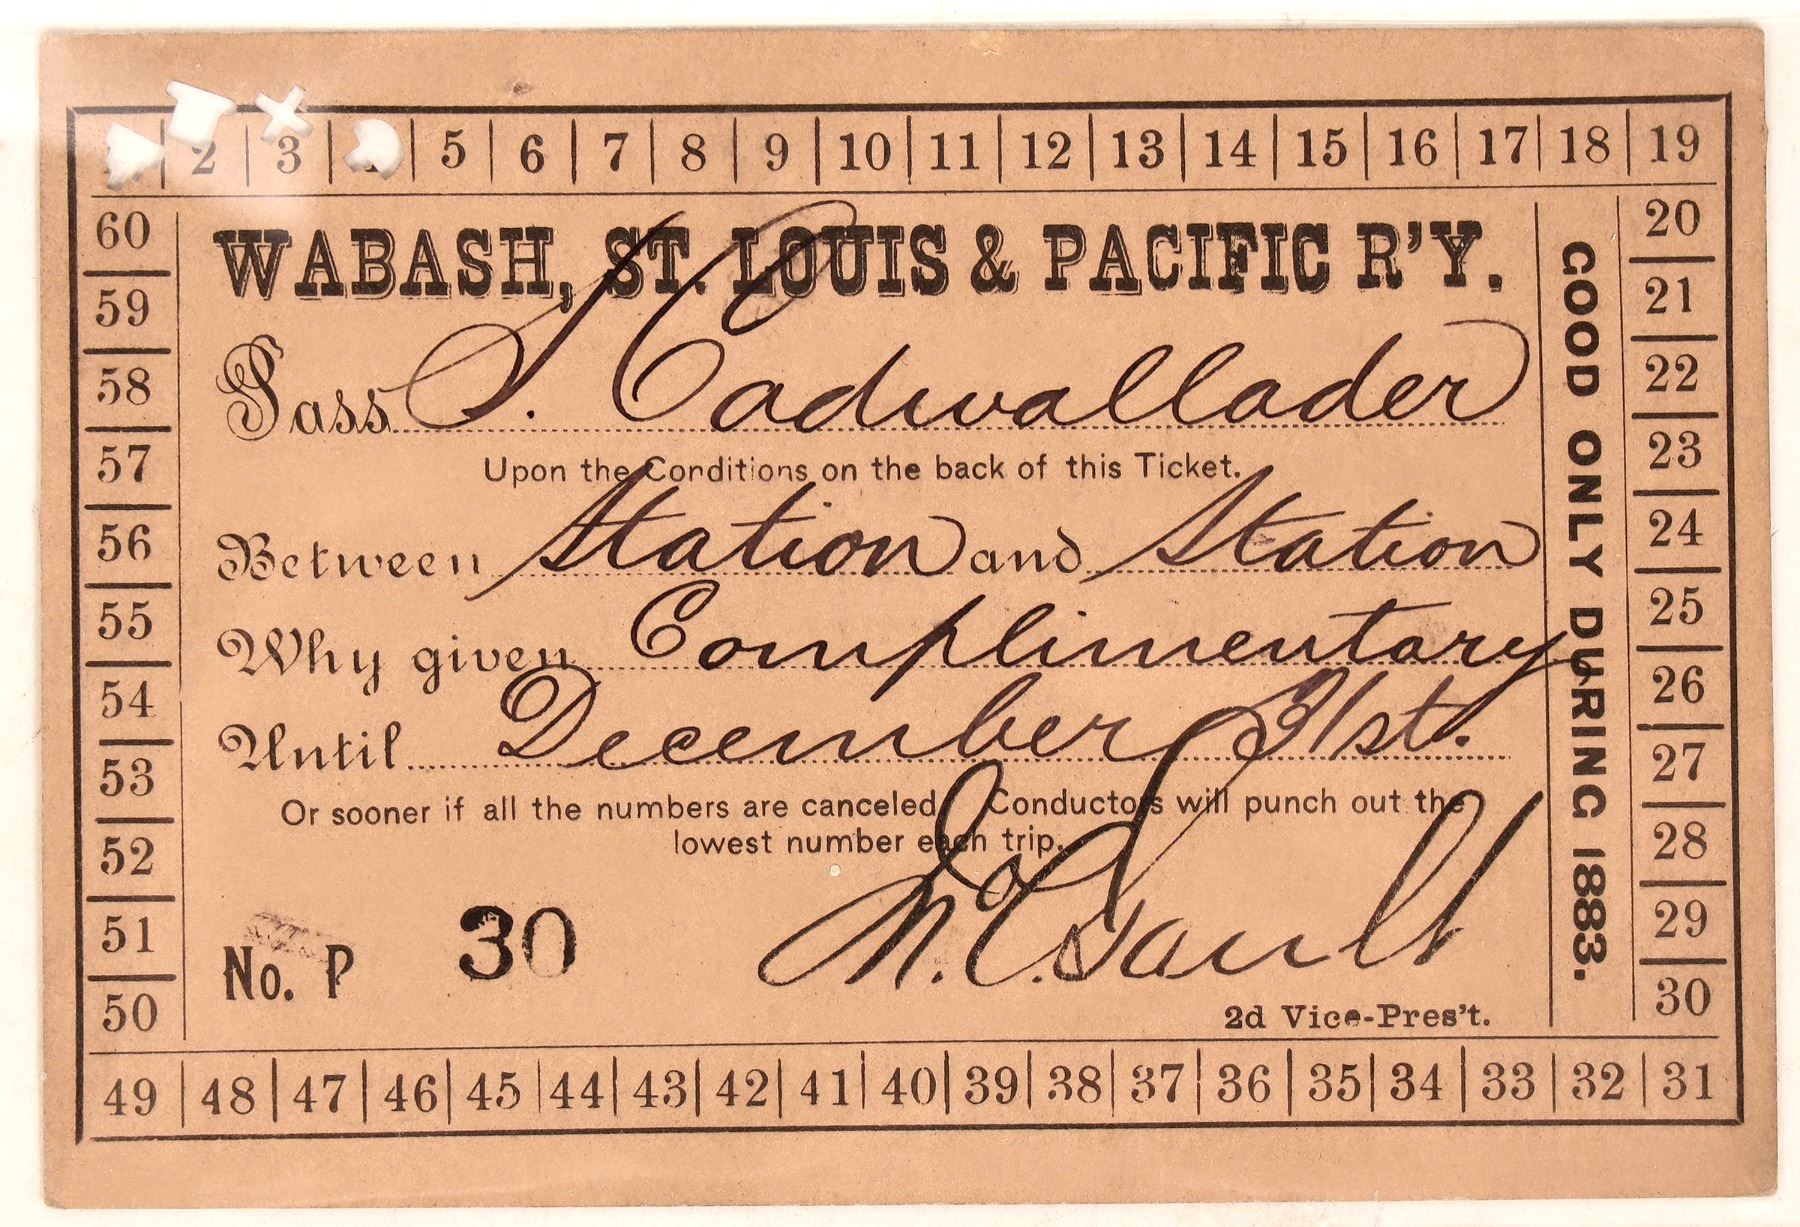 2 | 3 | | 5 | 6 | 7 | 8 | 9 | 10 | 11 | 12 | 13 | 14 | 15 | 16 | 17 | 18 | 19
WABASH, ST. LOUIS & PACIFIC R'Y.
Pass J. Cadwallader
Upon the Conditions on the back of this Ticket.
Between Station and Station
Why given Complimentary
Until December 31st.
Or sooner if all the numbers are canceled. Conductors will punch out the
lowest number each trip.
No. P 30
2d Vice-Pres't.
GOOD ONLY DURING 1883.
20
21
22
23
24
25
26
27
28
29
30
49 | 48 | 47 | 46 | 45 | 44 | 43 | 42 | 41 | 40 | 39 | 38 | 37 | 36 | 35 | 34 | 33 | 32 | 31
60
59
58
57
56
55
54
53
52
51
50